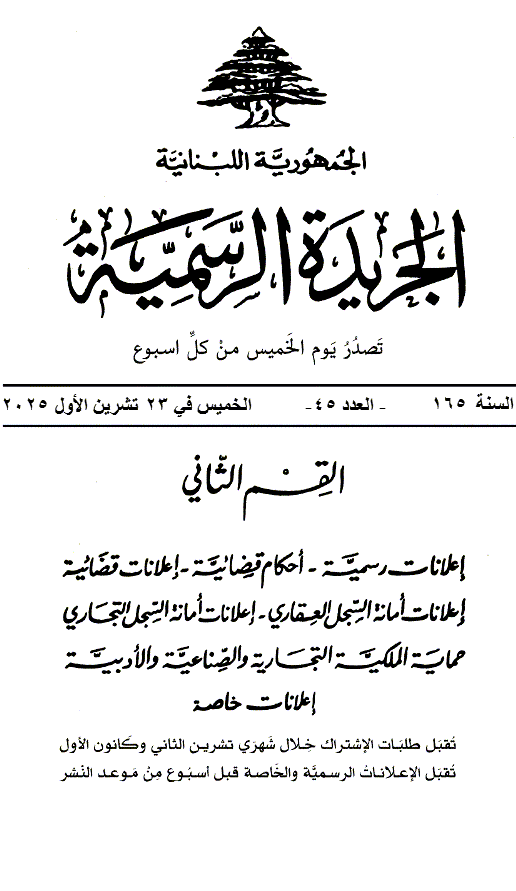 الجُمهُوريَّة اللبْنانيَّة
الجَريدَة الرسَّمِيَّة
تَصدُرُ يَوم الخَميس منْ كلِّ اسبوع
السنة ١٦٥ - العدد ٤٥ - الخميس في ٢٣ تشرين الأول ٢٠٢٥
القِسْم الثّاني
إعلانات رسميَّة - أحكام قضائيَّة - إعلانات قضائية
إعلانات أمانة السِّجل العِقاري - إعلانات أمانة السِّجل التجاري
حماية الملكيَّة التجارية والصِّناعيَّة والأدبيَّة
إعلانات خاصة
تُقبَل طلبَات الإشتراك خِلال شَهرَي تشرين الثاني وكَانون الأول
تُقبَل الإعلاناتُ الرسميَّة والخَاصة قبل أسبُوع مِنْ مَوعد النَشر